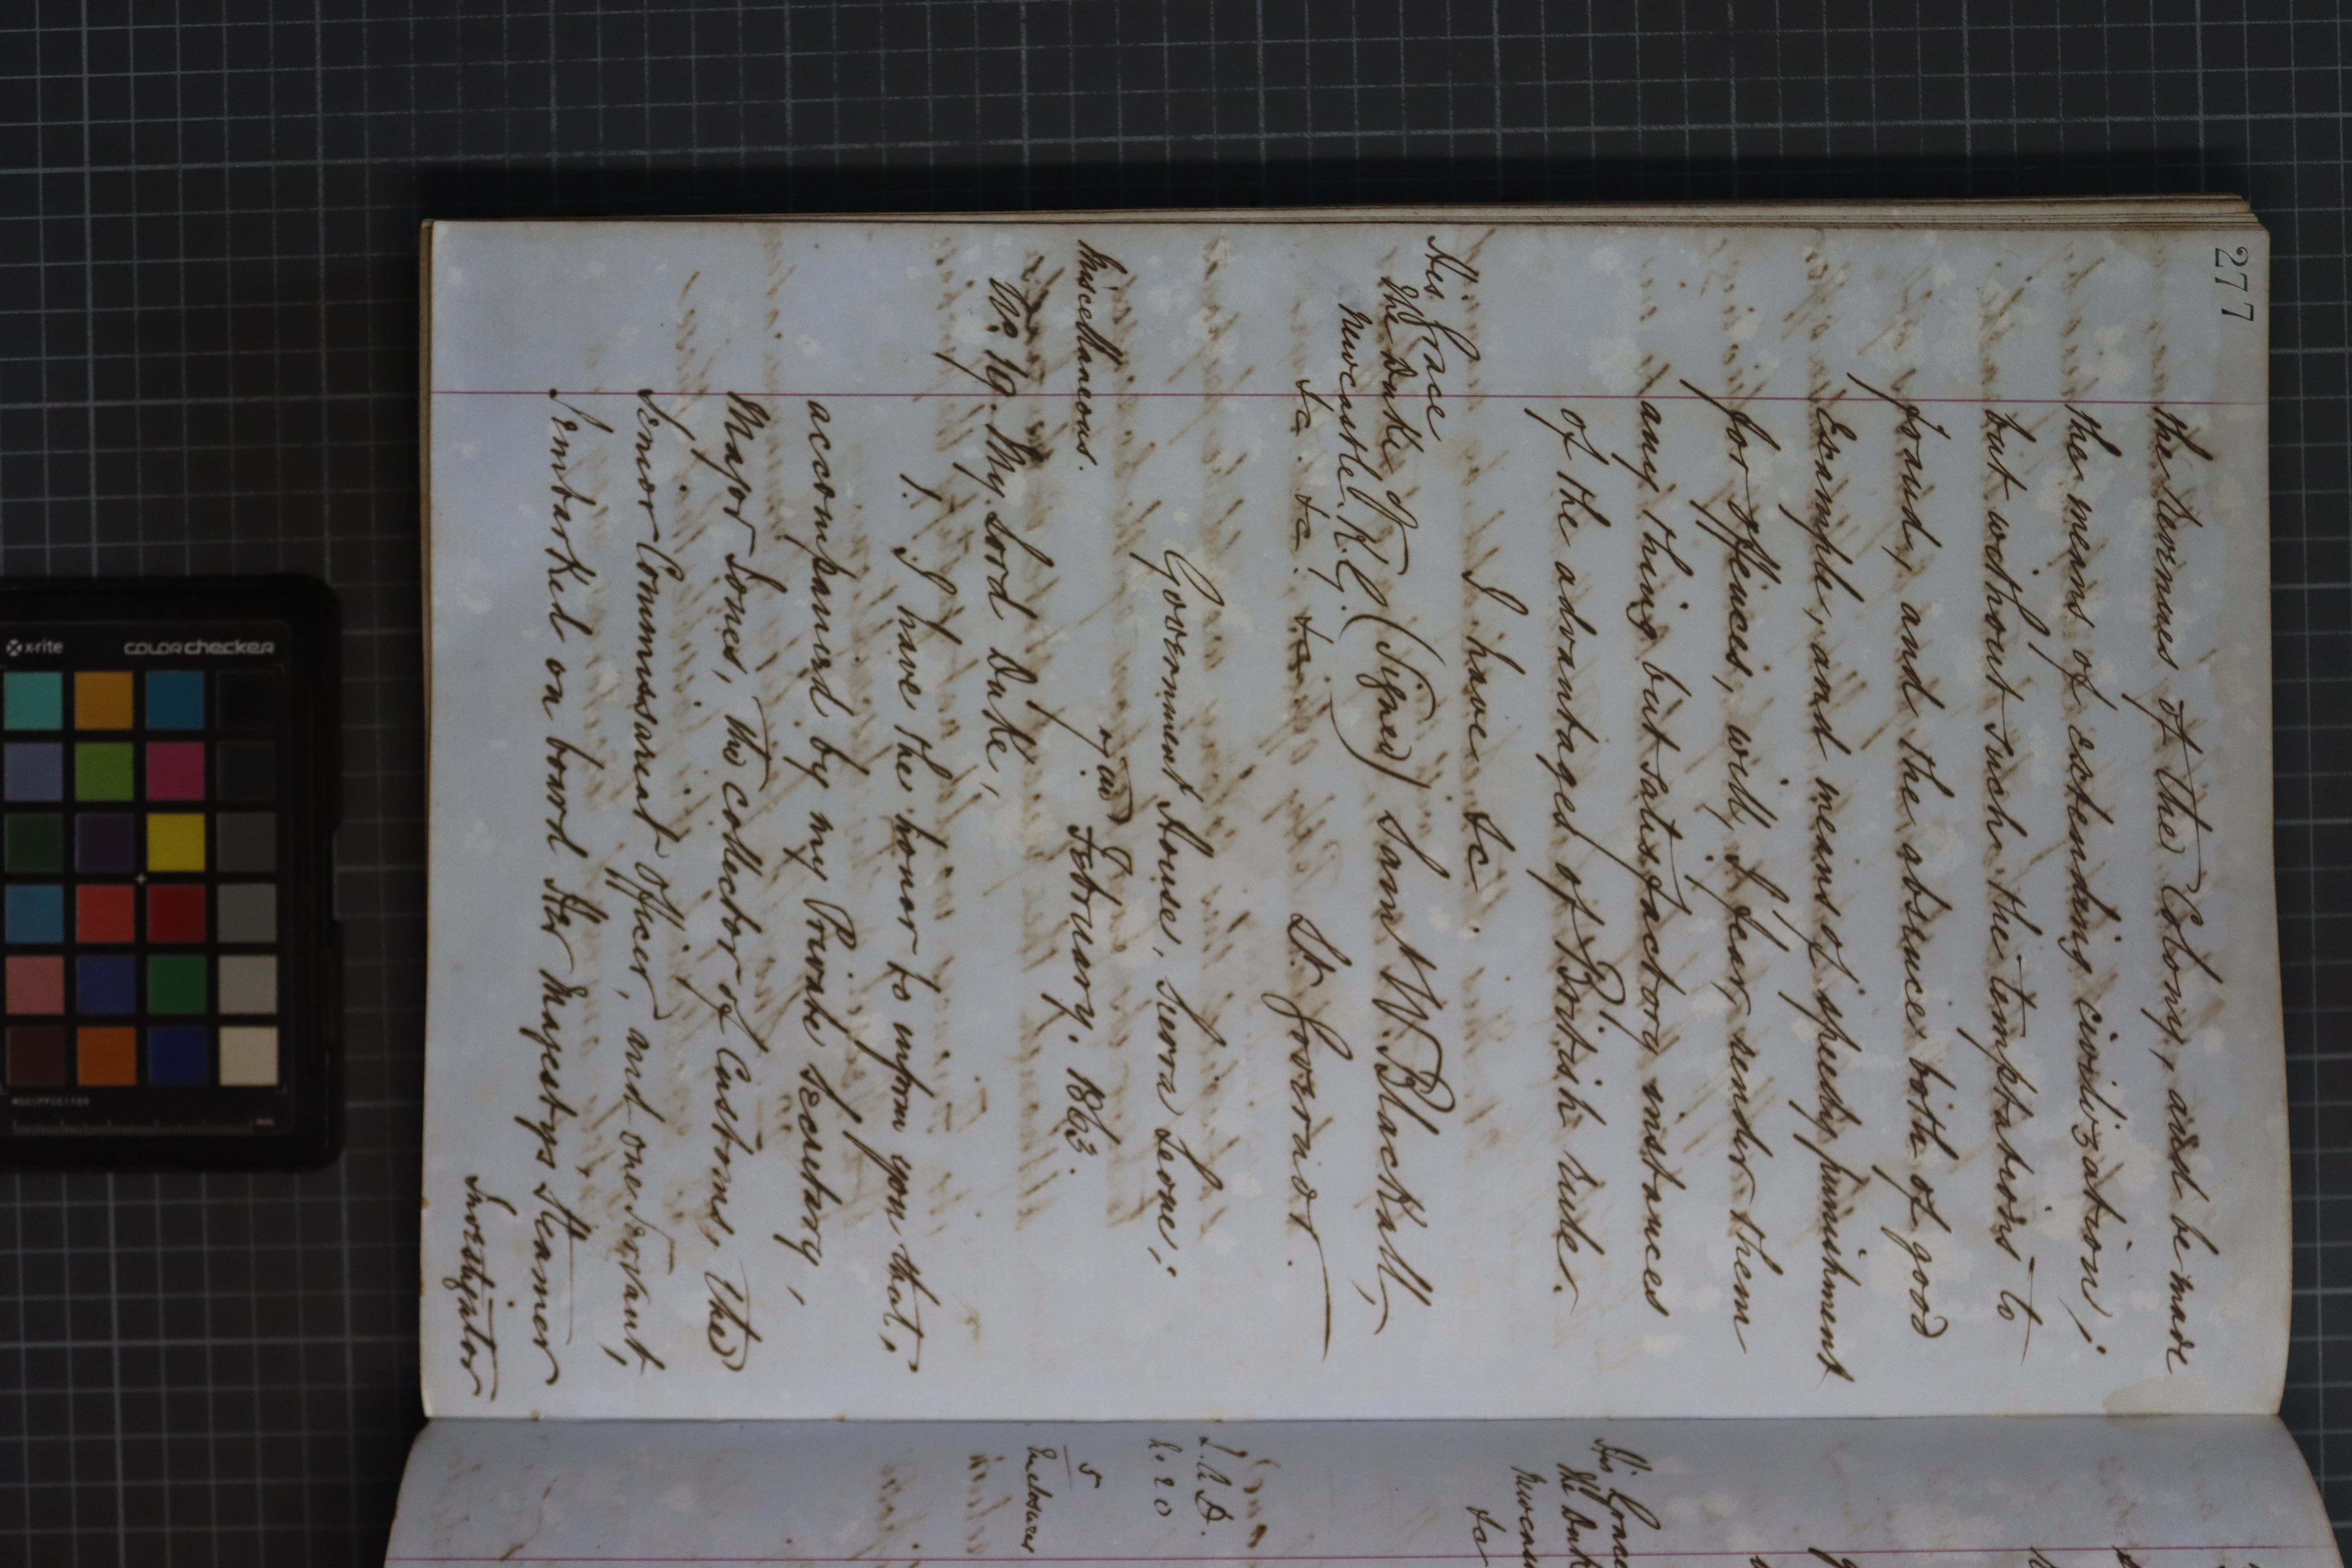 277
the Revenues of the Colony, and be made
the means of extending civilization;
but without such the temptations to
fraud, and the absence both of good
Example, and means of speedy punishment
for offences, will, I fear, render them
any thing but satisfactory instances
of the advantages of British rule.
I have &c.
His Grace
The Duke of
Newcastle. K.G. (Signed) Sam W. Blackall,
&c. &c. &c. Lt. Governor.
Government House, Sierra Leone;
Miscellaneous. February, 1863.
No. 19. My Lord Duke,
1. I have the honor to inform you that,
accompanied by my Private Secretary,
Major Jones, the Collector of Customs, the
Senior Commissariat Officer, and one Servant,
I embarked on board Her Majesty's Steamer
Investigator
His Grace
The Duk
Newcas
&c
5
Enclosures
x-rite
colorchecker